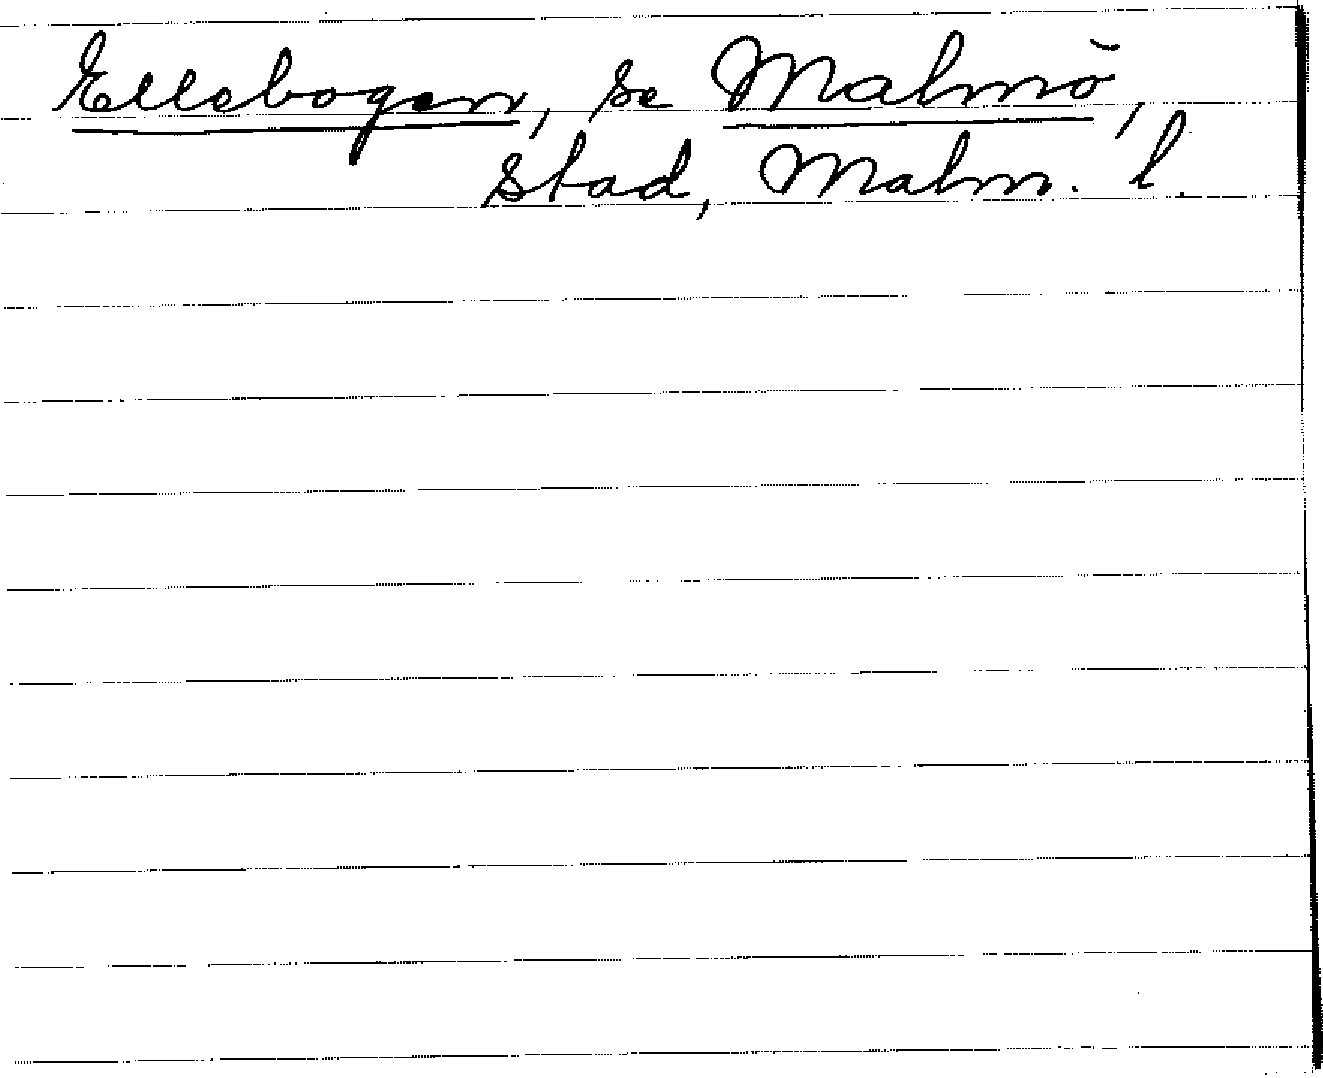 Ellebogen, se Malmö,
stad, Malm. l.